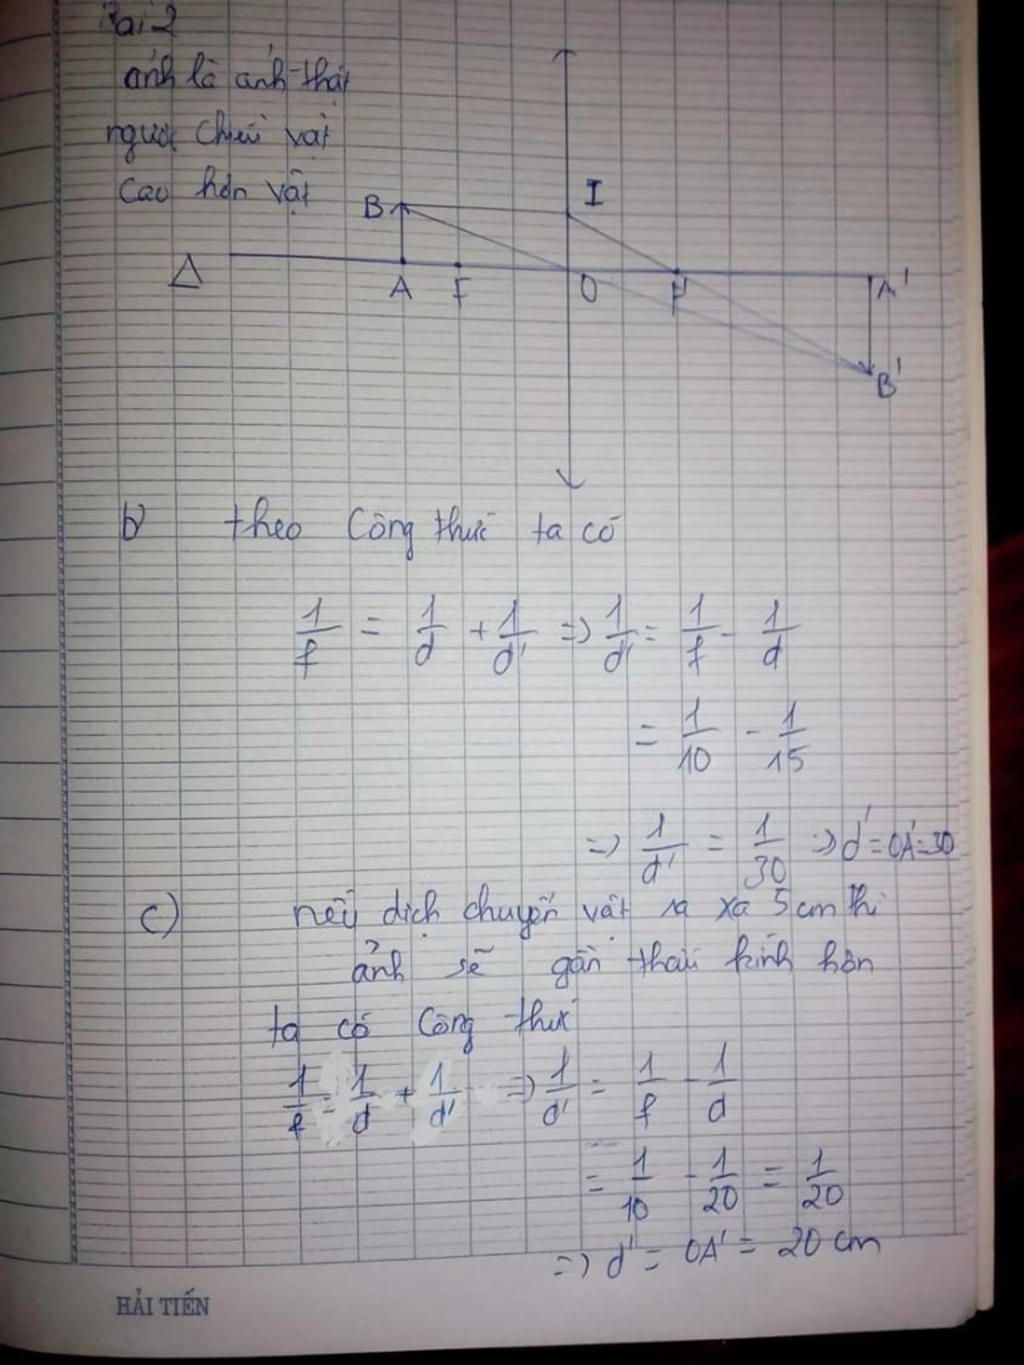 Bài 2
ảnh là ảnh thật
ngược chiều vật
Cao hơn vật
B
I
Δ
A
F
O
F'
A'
B'
b) theo Công thức ta có
1/f = 1/d + 1/d' => 1/d' = 1/f - 1/d
= 1/10 - 1/15
=> 1/d' = 1/30 => d' = OA' = 30
c) nếu dịch chuyển vật ra xa 5cm thì
ảnh sẽ gần thấu kính hơn
ta có Công thức
1/f = 1/d + 1/d' => 1/d' = 1/f - 1/d
= 1/10 - 1/20 = 1/20
=> d' = OA' = 20 cm
HẢI TIẾN